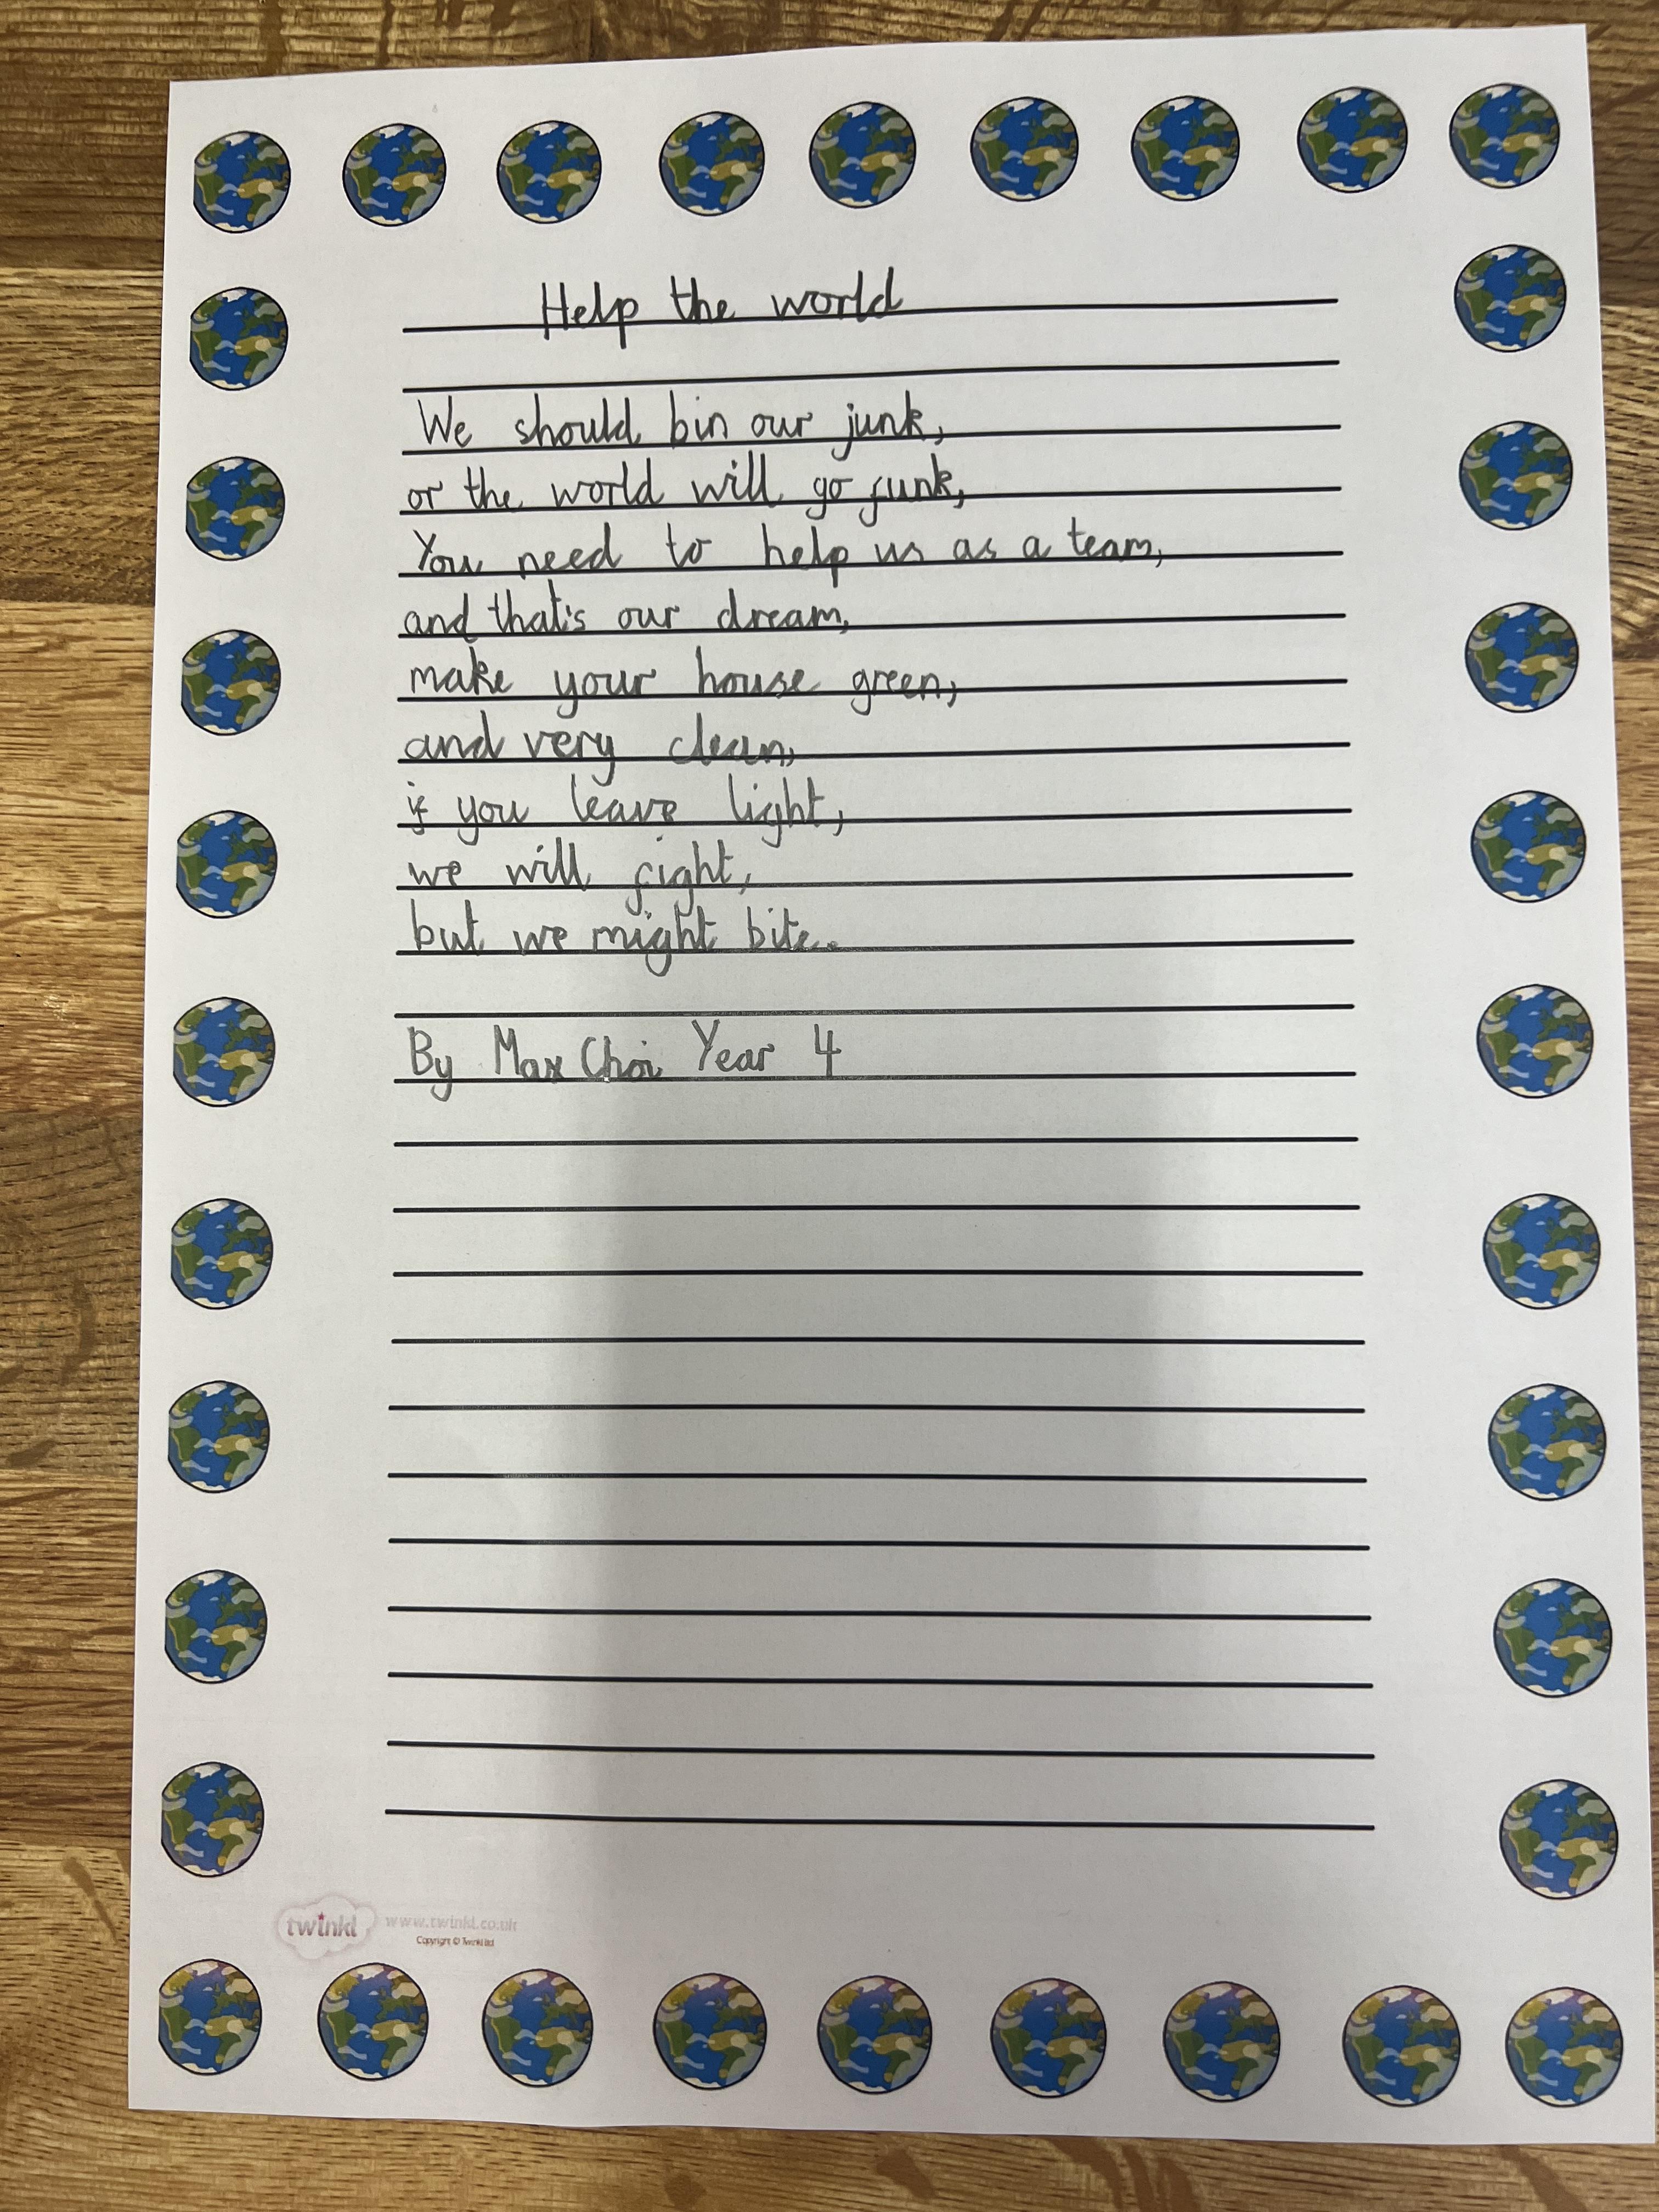 Help the world
We should bin our junk,
or the world will go funk,
You need to help us as a team,
and that's our dream,
make your house green,
and very clean,
if you leave light,
we will fight,
but we might bite.
By Max Choi Year 4
twinkl www.twinkl.co.uk
Copyright © Twinkl Ltd